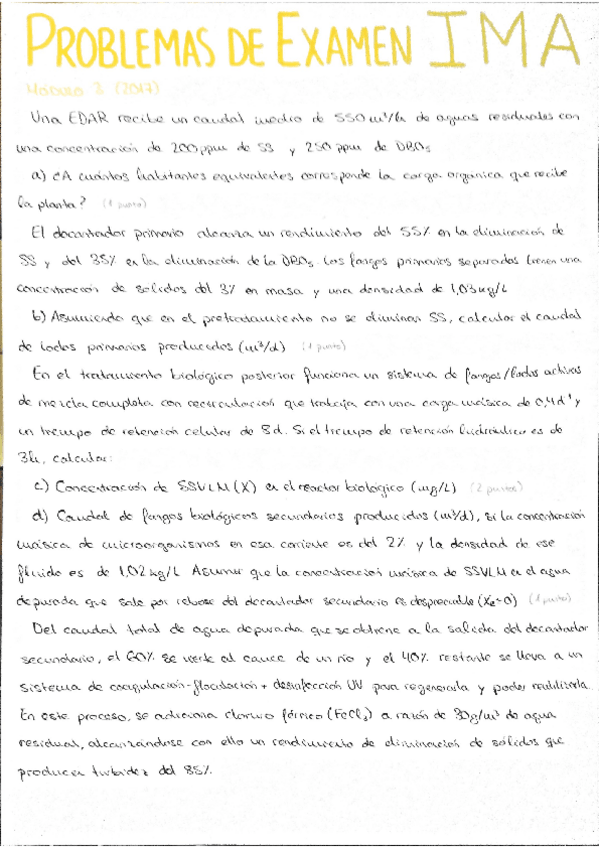 PROBLEMAS DE EXAMEN IMA
MÓDULO 3 (2017)
Una EDAR recibe un caudal medio de 550 m³/h de aguas residuales con
una concentración de 200 ppm de SS y 250 ppm de DBO₅
a) ¿A cuántos habitantes equivalentes corresponde la carga orgánica que recibe
la planta? (1 punto)
El decantador primario alcanza un rendimiento del 55% en la eliminación de
SS y del 35% en la eliminación de la DBO₅. Los fangos primarios separados tienen una
concentración de sólidos del 3% en masa y una densidad de 1,03 kg/L
b) Asumiendo que en el pretratamiento no se eliminan SS, calcular el caudal
de lodos primarios producidos (m³/d) (1 punto)
En el tratamiento biológico posterior funciona un sistema de fangos/lodos activos
de mezcla completa con recirculación que trabaja con una carga másica de 0,4 d⁻¹ y
un tiempo de retención celular de 8d. Si el tiempo de retención hidráulico es de
3h, calcular:
c) Concentración de SSVLM (X) en el reactor biológico (mg/L) (2 puntos)
d) Caudal de fangos biológicos secundarios producidos (m³/d), si la concentración
másica de microorganismos en esa corriente es del 2% y la densidad de ese
fluido es de 1,02 kg/L Asumir que la concentración másica de SSVLM en el agua
depurada que sale por rebose del decantador secundario es despreciable (Xe≈0) (1 punto)
Del caudal total de agua depurada que se obtiene a la salida del decantador
secundario, el 60% se vierte al cauce de un río y el 40% restante se lleva a un
sistema de coagulación-floculación + desinfección UV para regenerarla y poder reutilizarla.
En este proceso, se adiciona cloruro férrico (FeCl₃) a razón de 30g/m³ de agua
residual, alcanzándose con ello un rendimiento de eliminación de sólidos que
producen turbidez del 85%.